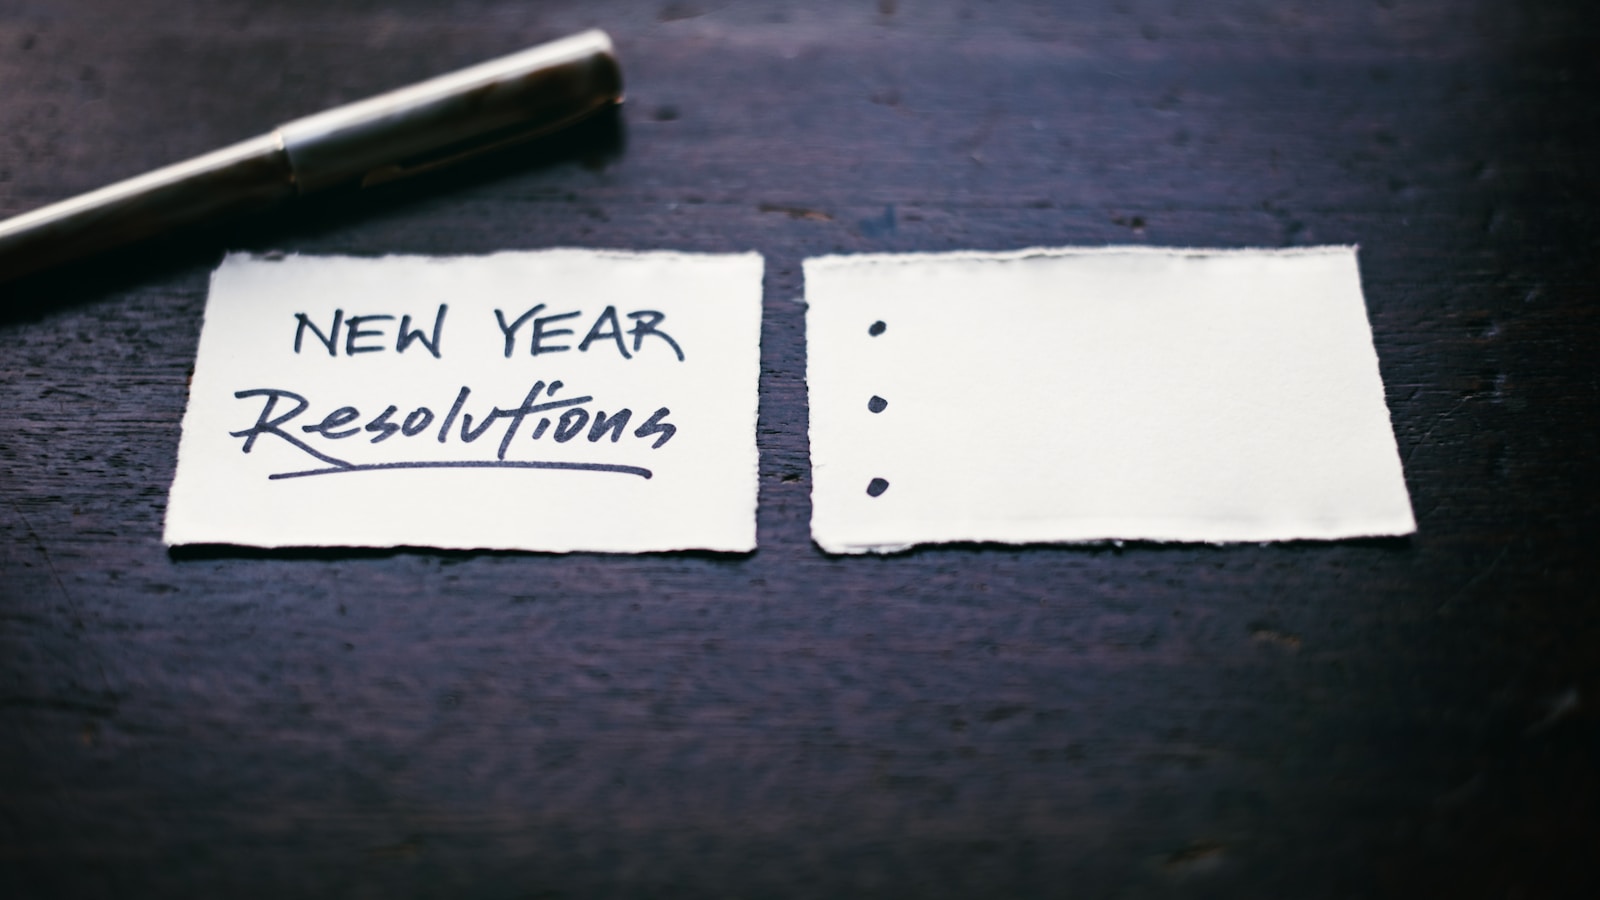 NEW YEAR
Resolutions
•
•
•